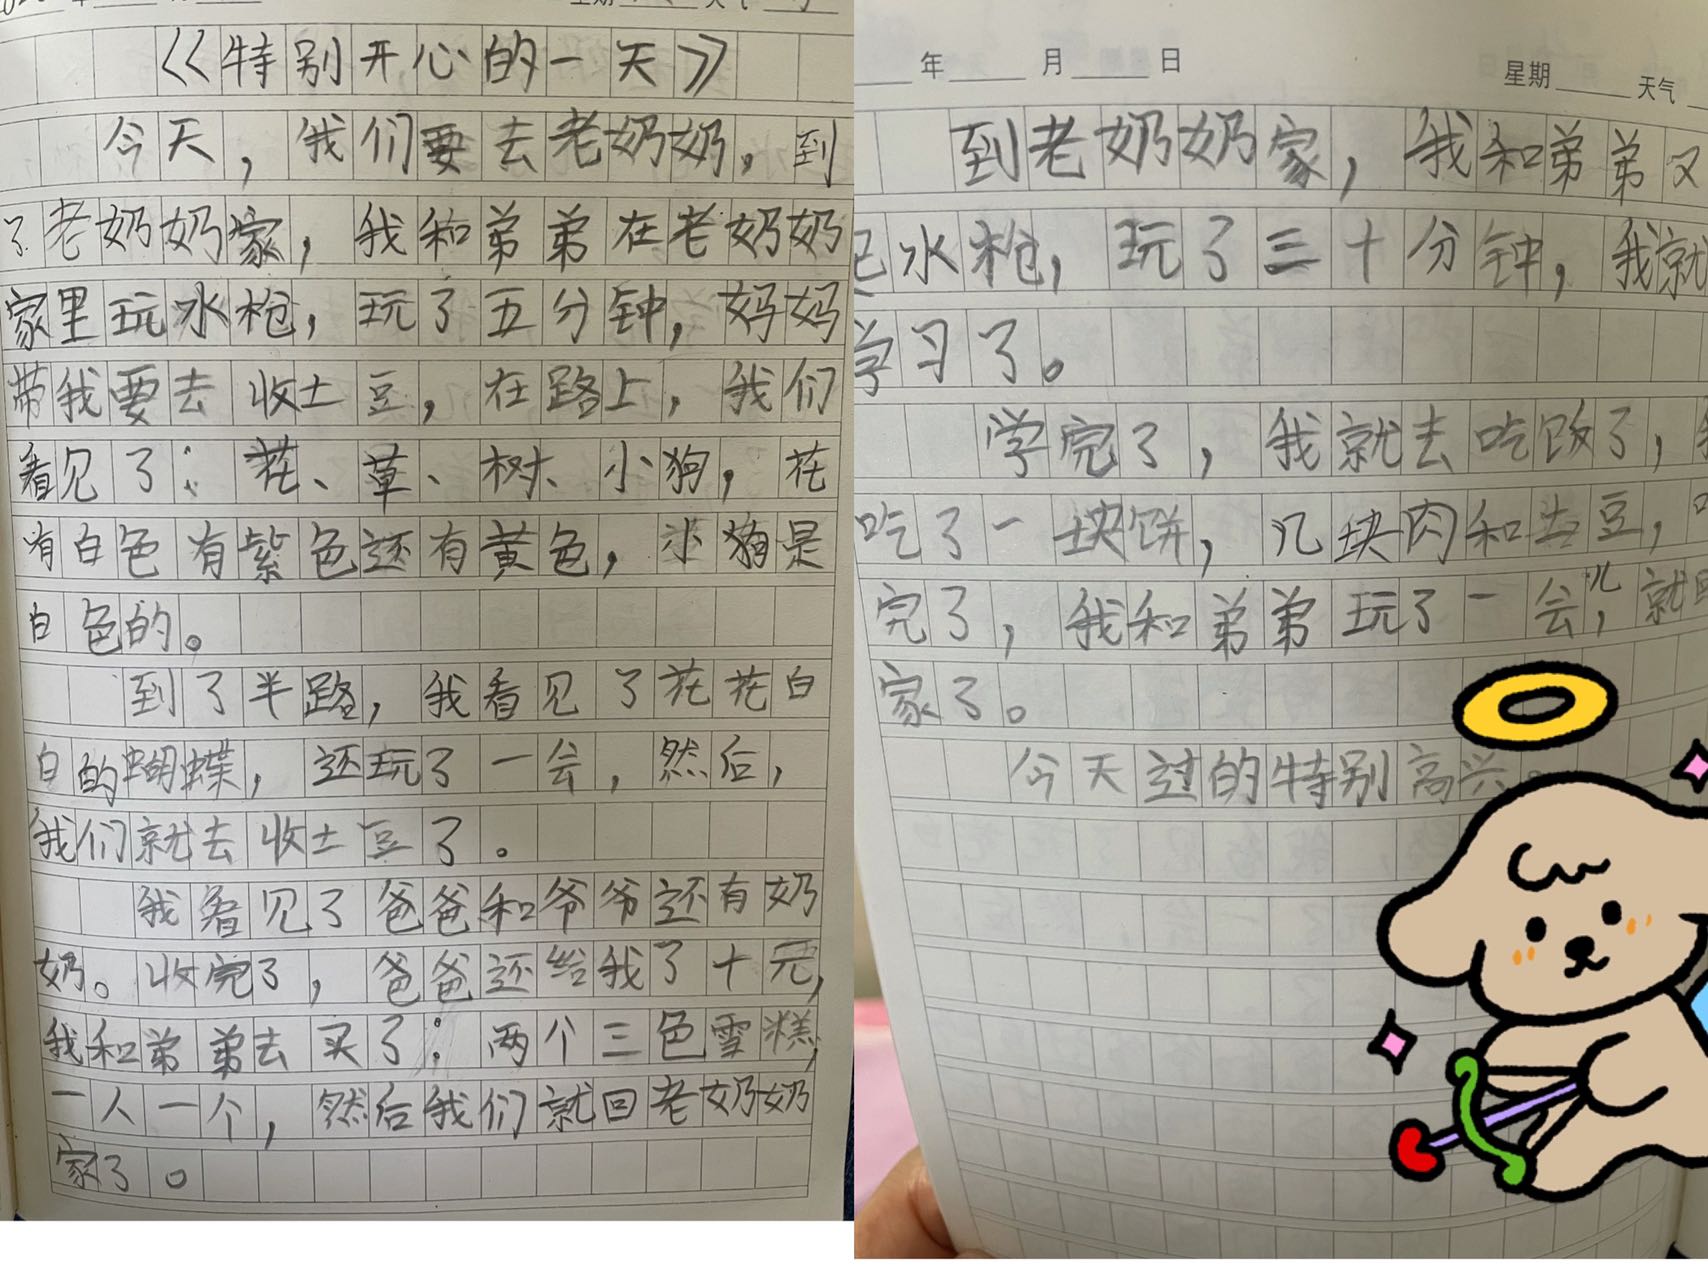 年 星期 天气
《特别开心的一天》
今天，我们要去老奶奶，到
了老奶奶家，我和弟弟在老奶奶
家里玩水枪，玩了五分钟，妈妈
带我要去收土豆，在路上，我们
看见了：花、草、树、小狗，花
有白色有紫色还有黄色，小狗是
白色的。
到了半路，我看见了花花白
白的蝴蝶，还玩了一会，然后，
我们就去收土豆了。
我看见了爸爸和爷爷还有奶
奶。收完了，爸爸还给我了十元，
我和弟弟去买了：两个三色雪糕，
一人一个，然后我们就回老奶奶
家了。
年 月 日 星期 天气
到老奶奶家，我和弟弟又
水枪，玩了三十分钟，我就
学习了。
学完了，我就去吃饭了，
吃了一块饼，几块肉和土豆，
完了，我和弟弟玩了一会儿，就
家了。
今天过的特别高兴。